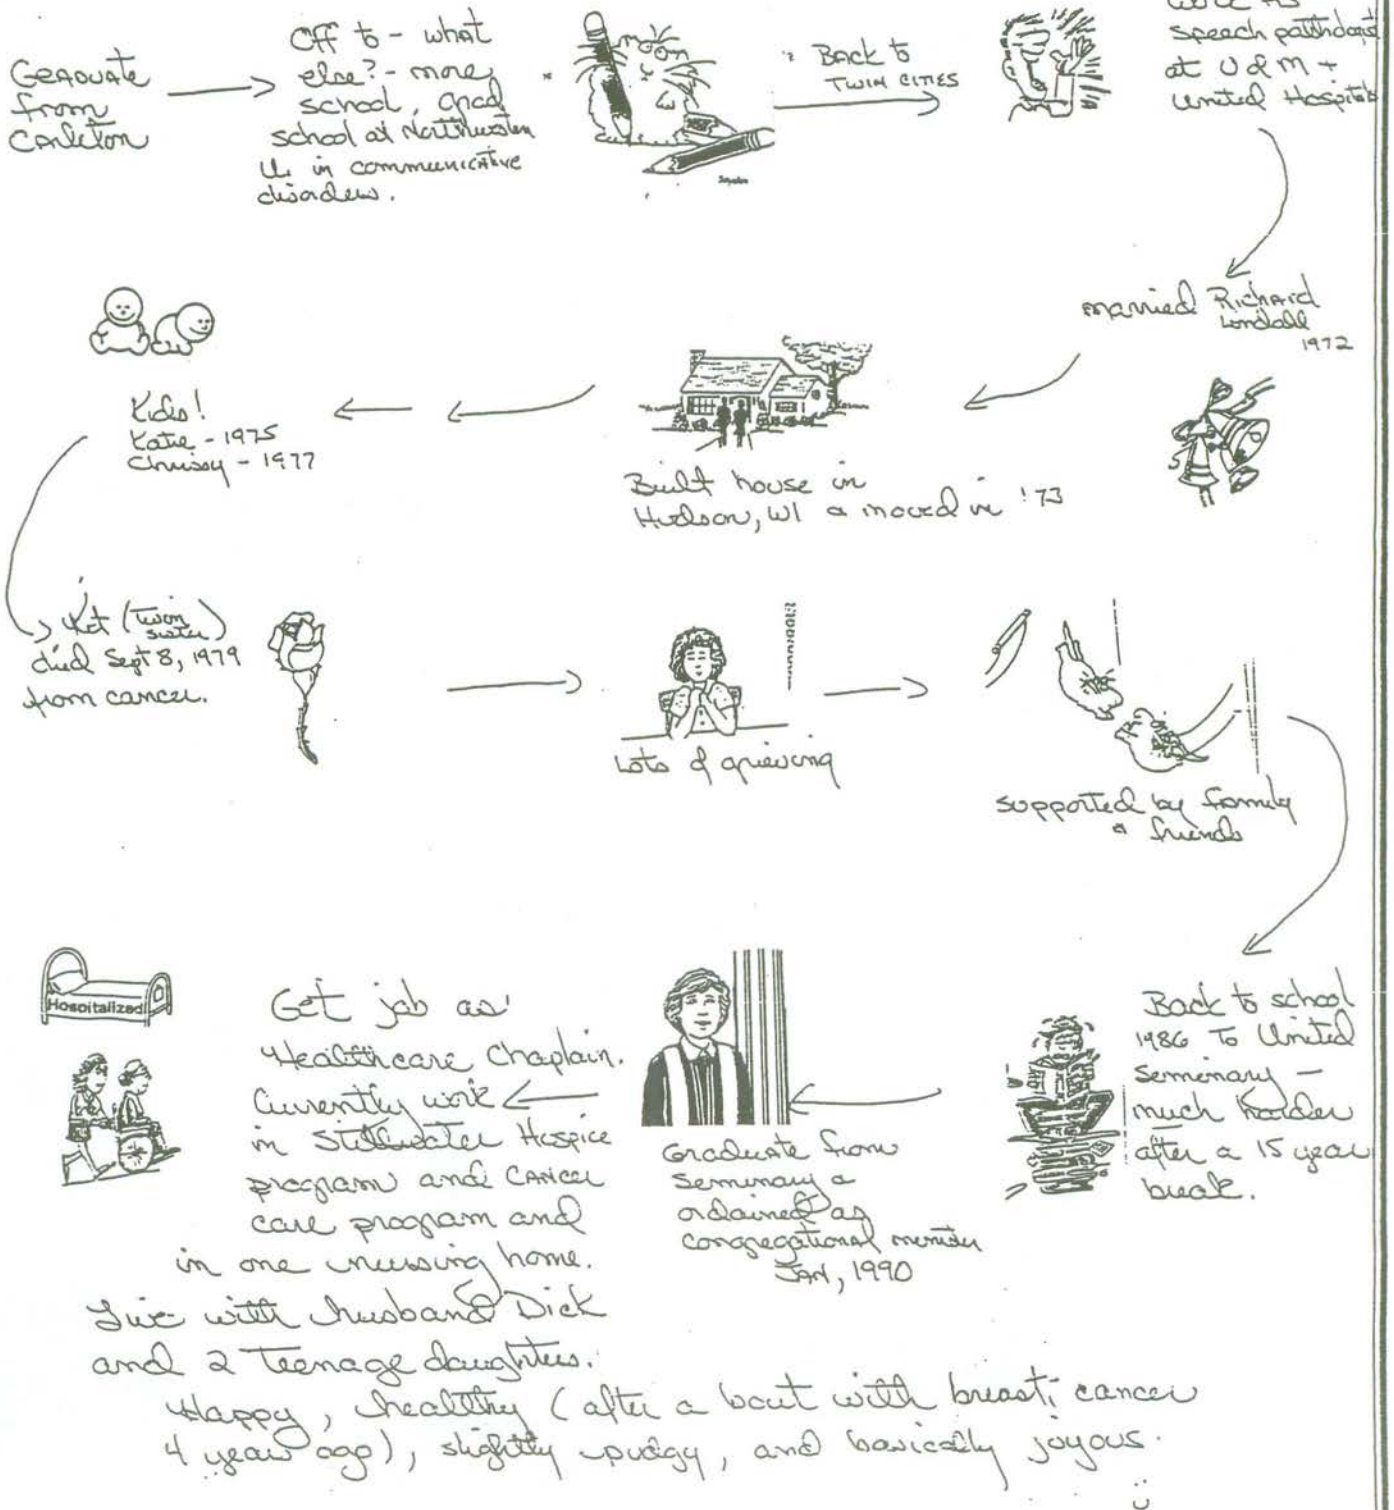 Graduate
from
Carleton
Off to - what
else? - more
school, grad
school at Northwestern
U. in communicative
disorders.
Back to
Twin Cities
work as
speech pathologist
at U of M +
United Hospitals
married Richard
1972
Built house in
Hudson, WI & moved in '73
Kids!
Katie - 1975
Chrissy - 1977
Kat (twin
sister)
died Sept 8, 1979
from cancer.
Lots of grieving
supported by family
& friends
Back to school
1986 To United
Seminary -
much harder
after a 15 year
break.
Graduate from
Seminary &
ordained as
congregational minister
JAN, 1990
Hospitalized
Get job as
Healthcare Chaplain.
Currently work
in Stillwater Hospice
program and Cancer
care program and
in one nursing home.
Live with husband Dick
and 2 teenage daughters.
Happy, healthy (after a bout with breast cancer
4 year ago), slightly pudgy, and basically joyous.